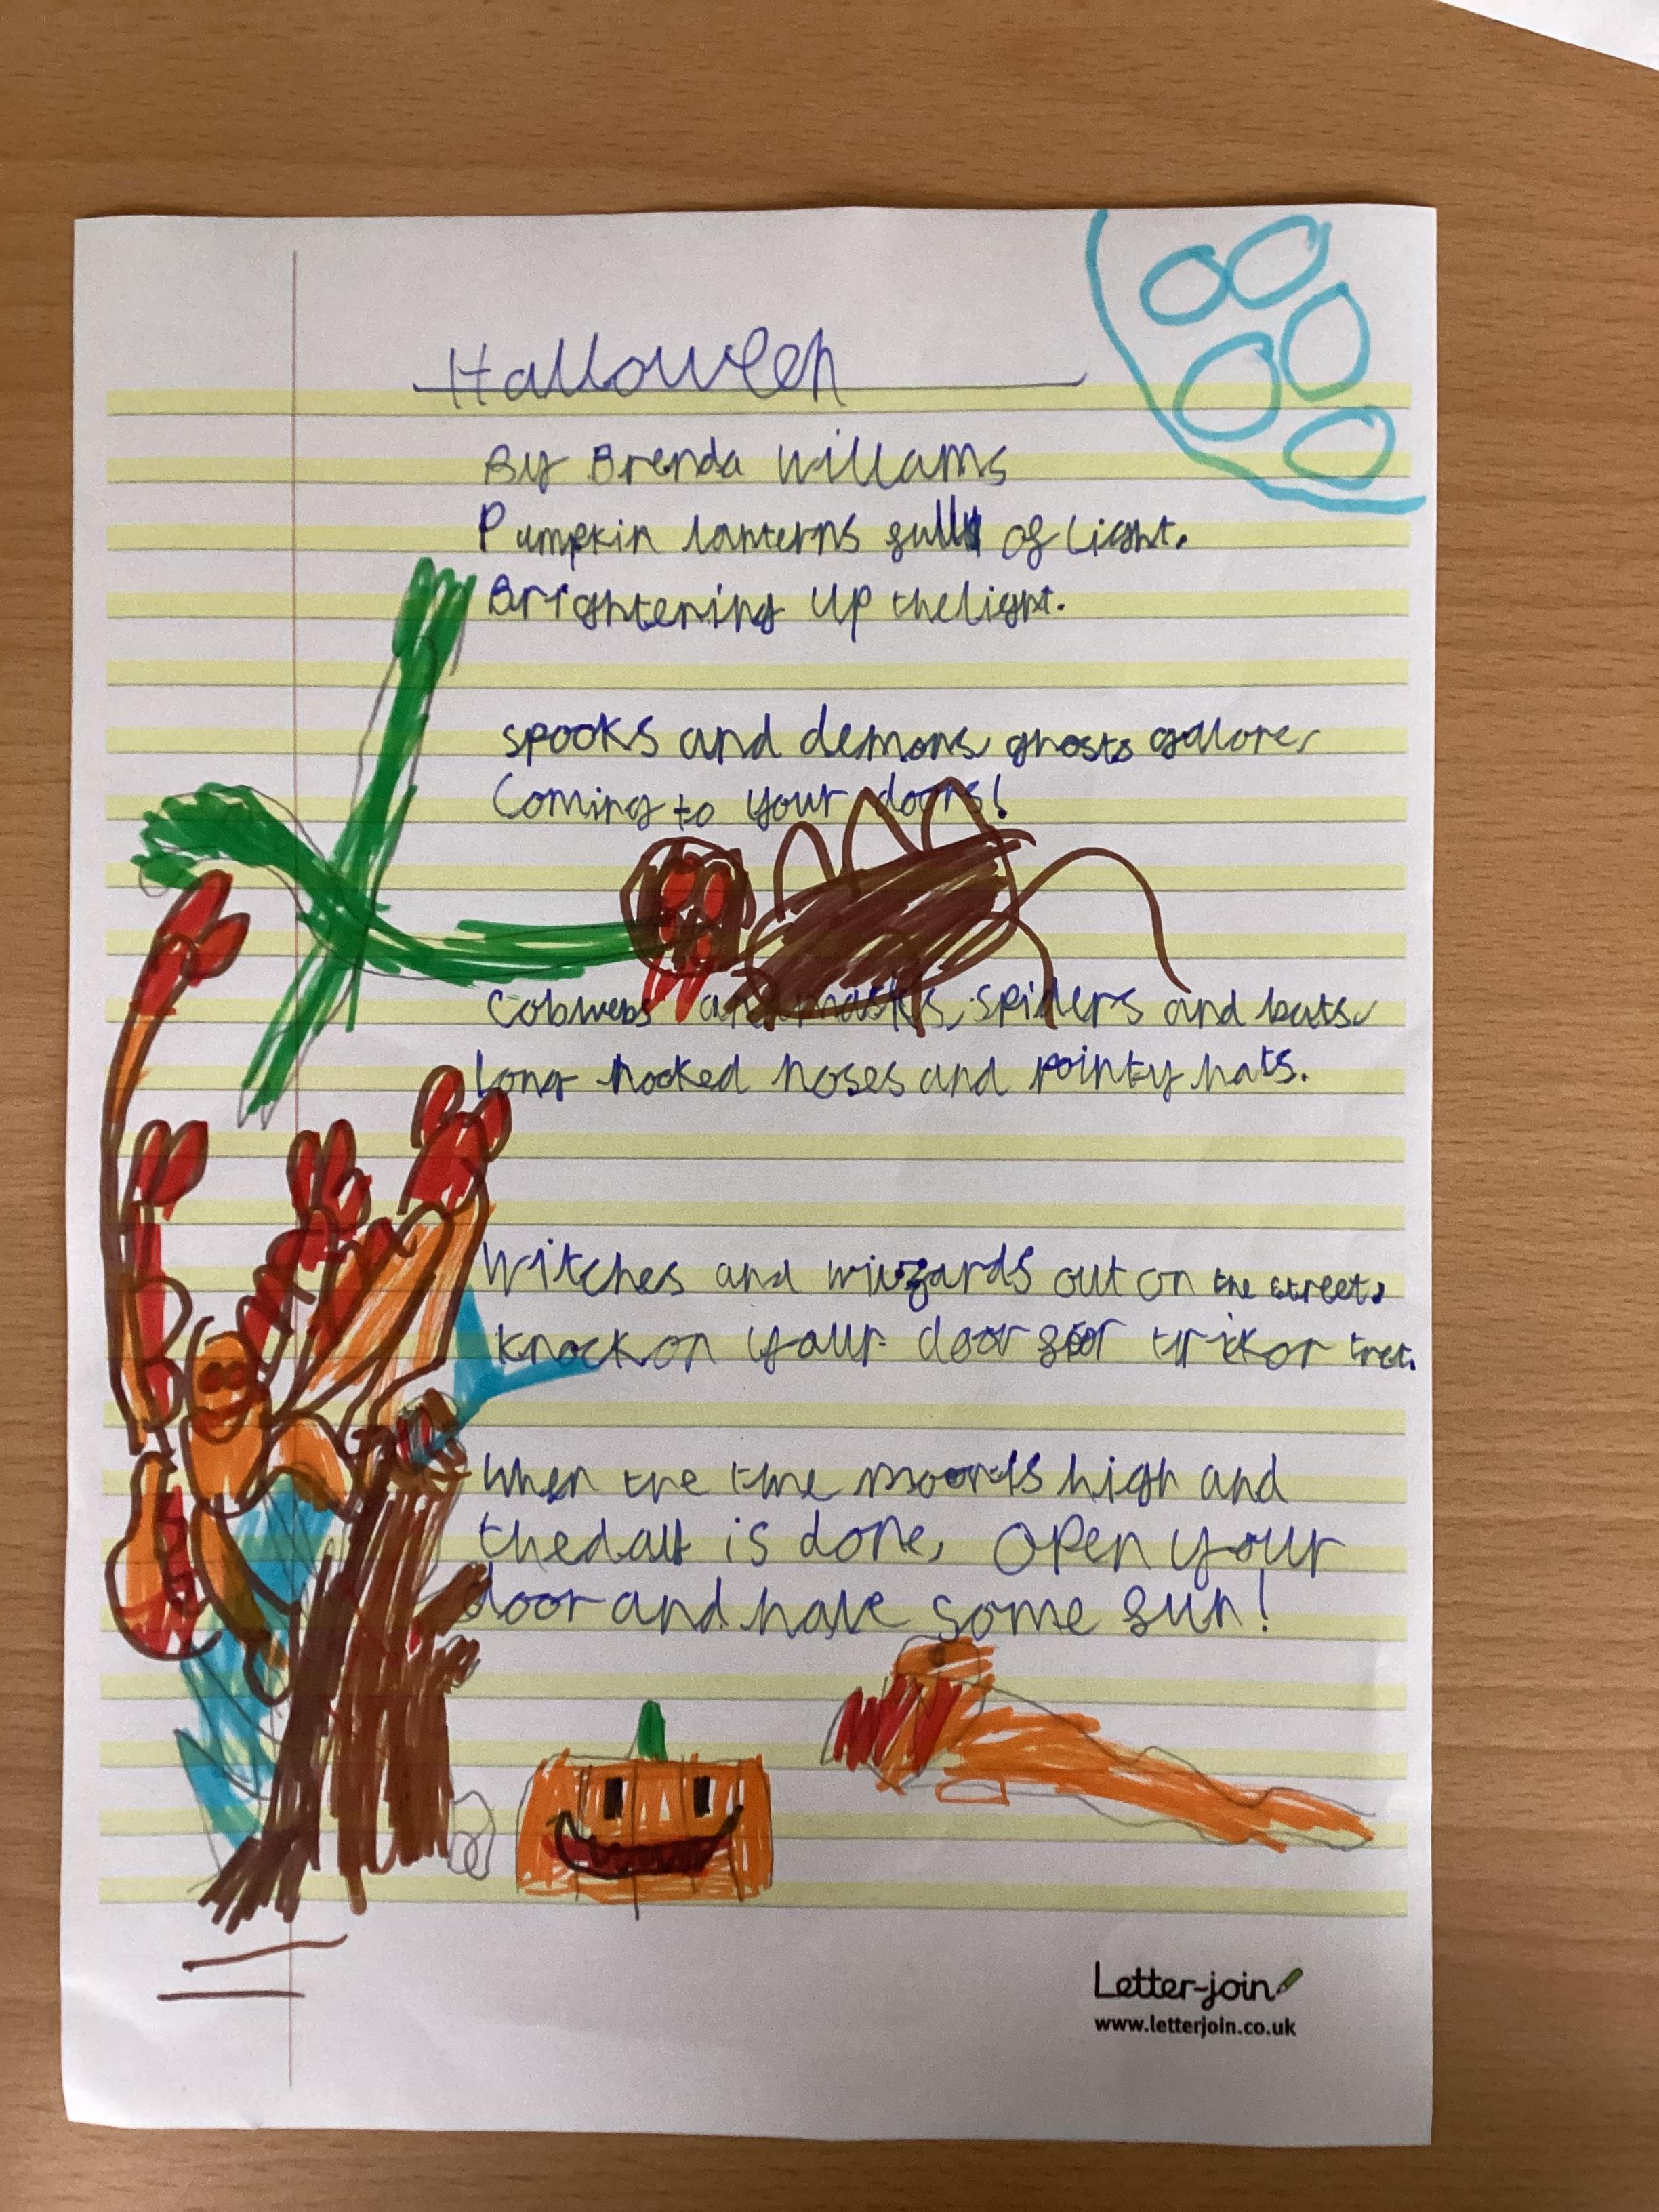 Halloween
By Brenda Willams
Pumpkin lanterns full of light.
Brightening up the light.
spooks and demons, ghosts galore,
Coming to your doors!
Cobwebs and masks, spiders and bats,
Long hooked noses and pointy hats.
Witches and wizards out on the street,
knock on your door for trik or tret.
When the the moon is high and
the dark is done, open your
door and have some fun!
Letter-join
www.letterjoin.co.uk